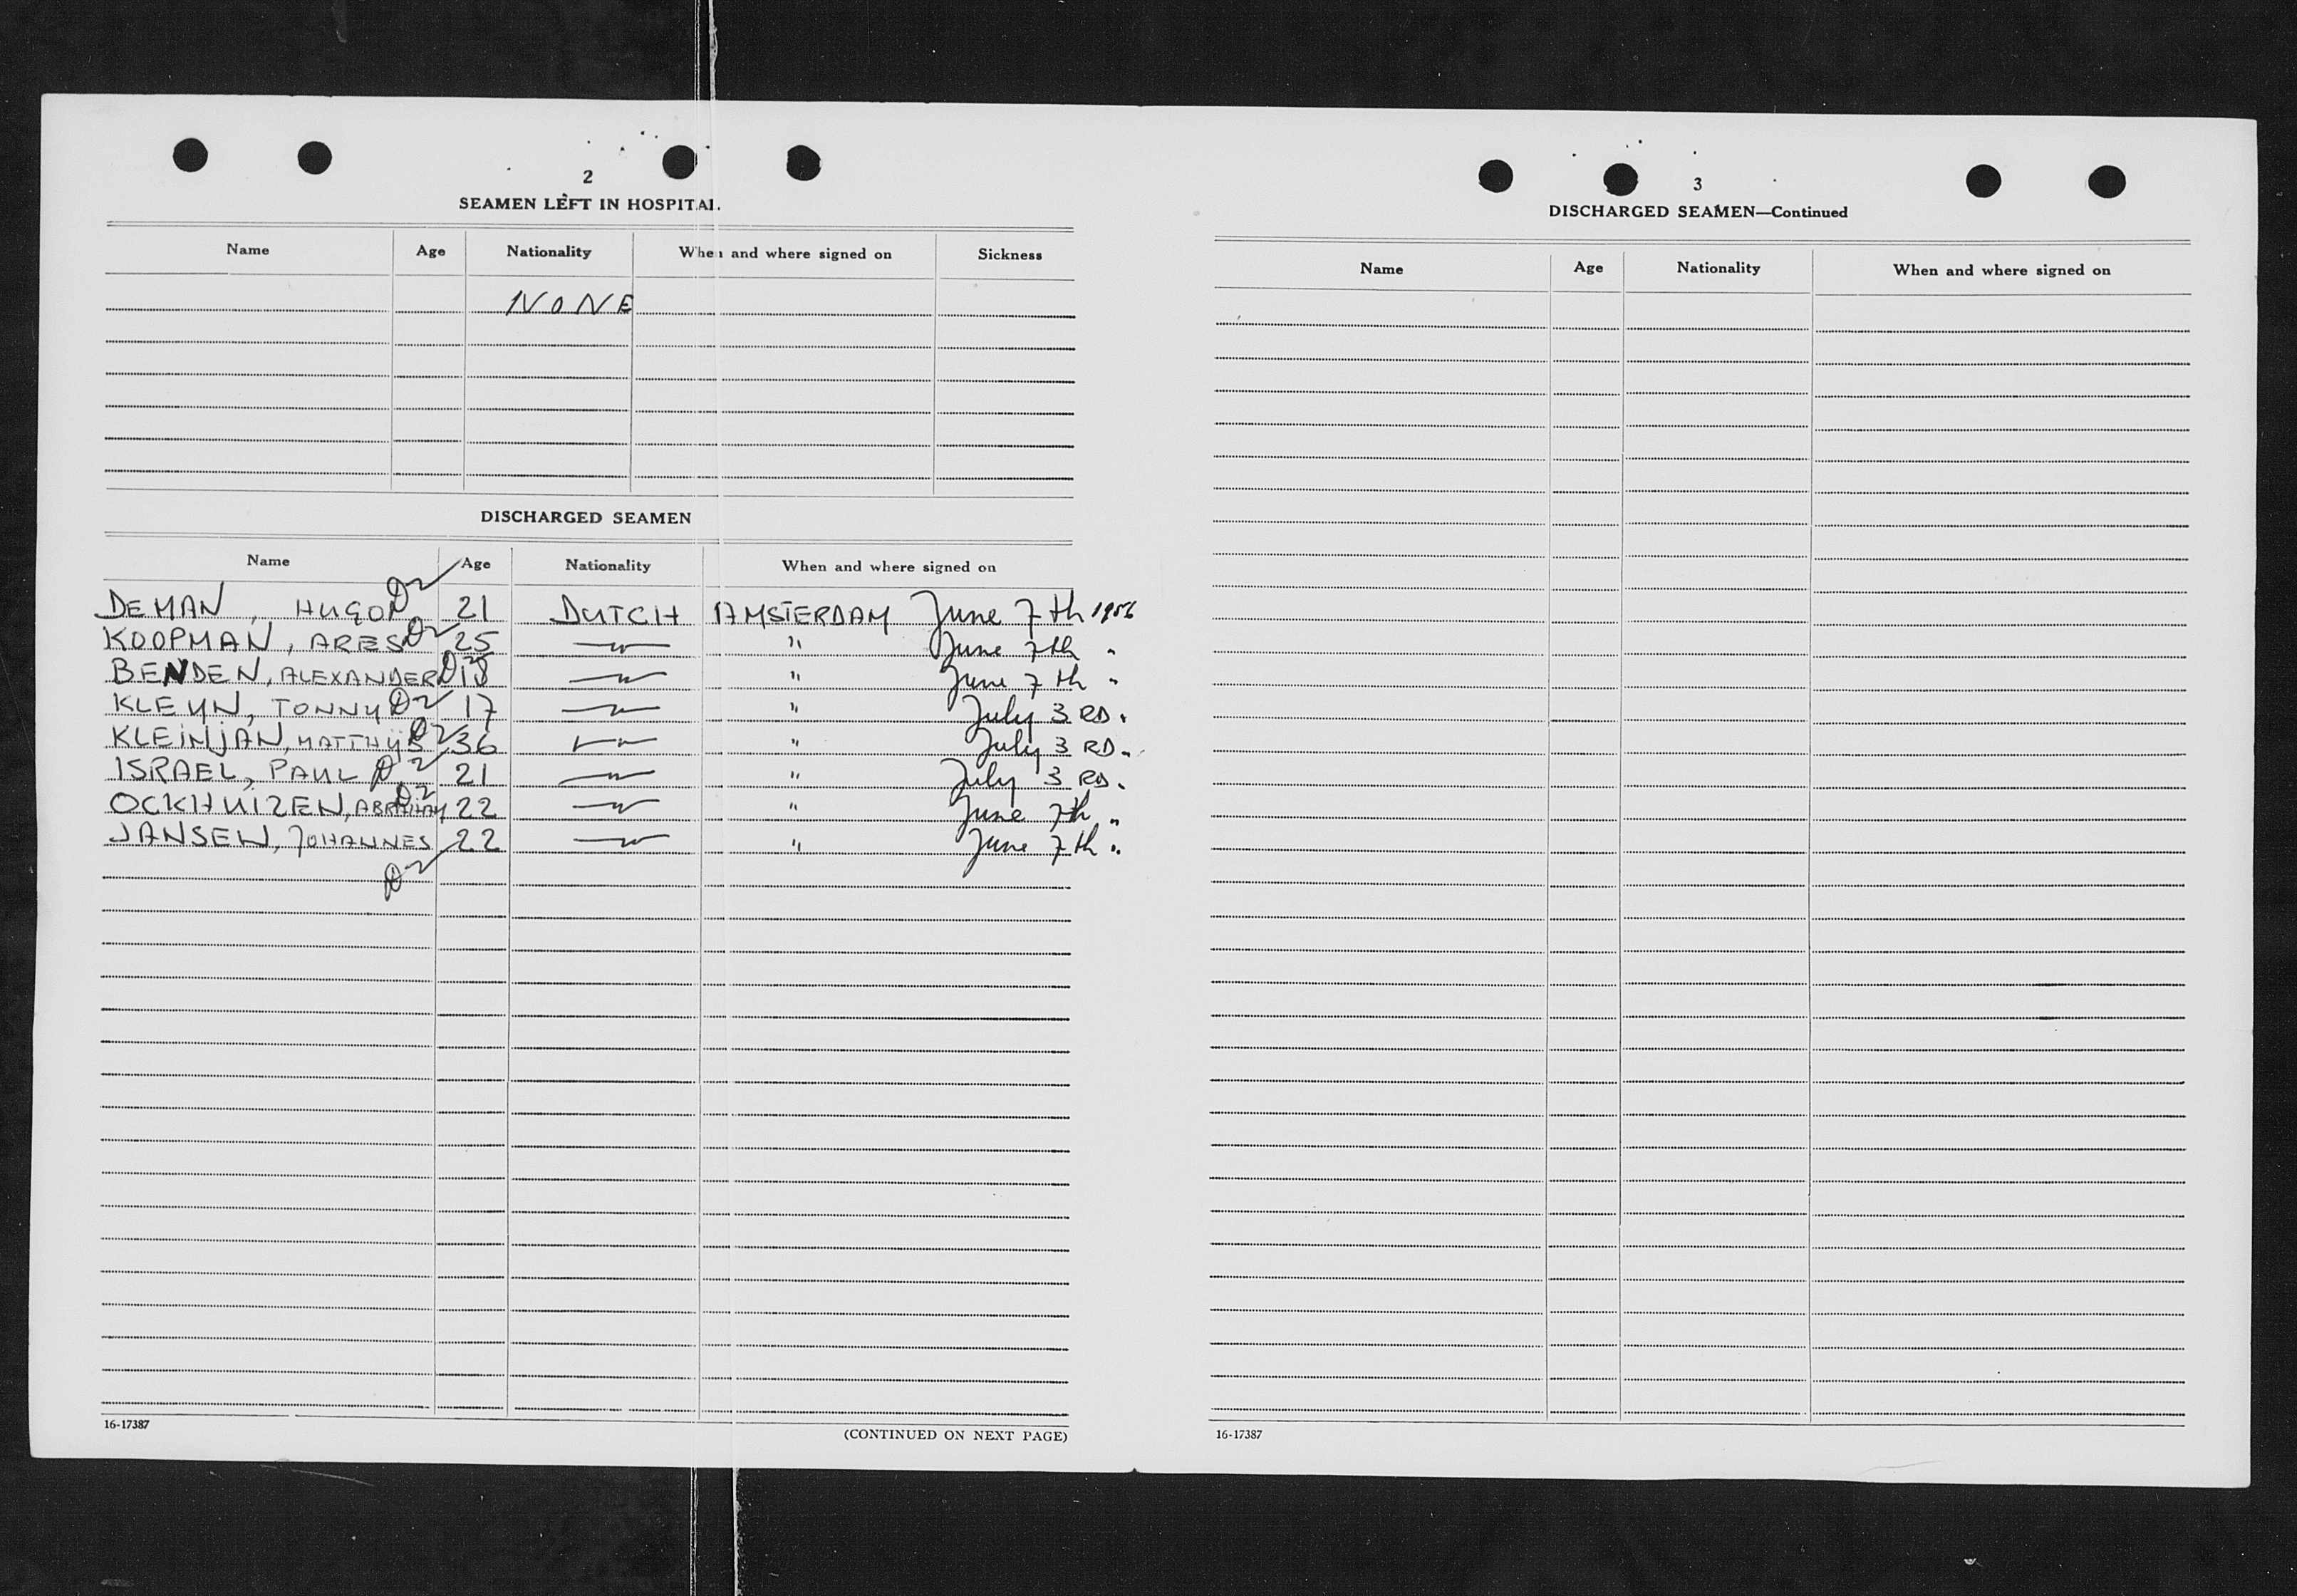 2
SEAMEN LEFT IN HOSPITAL
Name Age Nationality When and where signed on Sickness
NONE
DISCHARGED SEAMEN
Name Age Nationality When and where signed on
DEMAN, HUGO D2 21 DUTCH AMSTERDAM June 7th 1956
KOOPMAN, ARES D2 25 —"— " June 7th "
BENDEN, ALEXANDER D2 18 —"— " June 7th "
KLEYN, TONNY D2 17 —"— " July 3RD "
KLEINJAN, MATTHYS D2 36 —"— " July 3RD "
ISRAEL, PAUL D2 21 —"— " July 3RD "
OCKHUIZEN, ABRAHAM D2 22 —"— " June 7th "
JANSEN, JOHANNES 22 —"— " June 7th "
D2
16-17387
(CONTINUED ON NEXT PAGE)
3
DISCHARGED SEAMEN—Continued
Name Age Nationality When and where signed on
16-17387